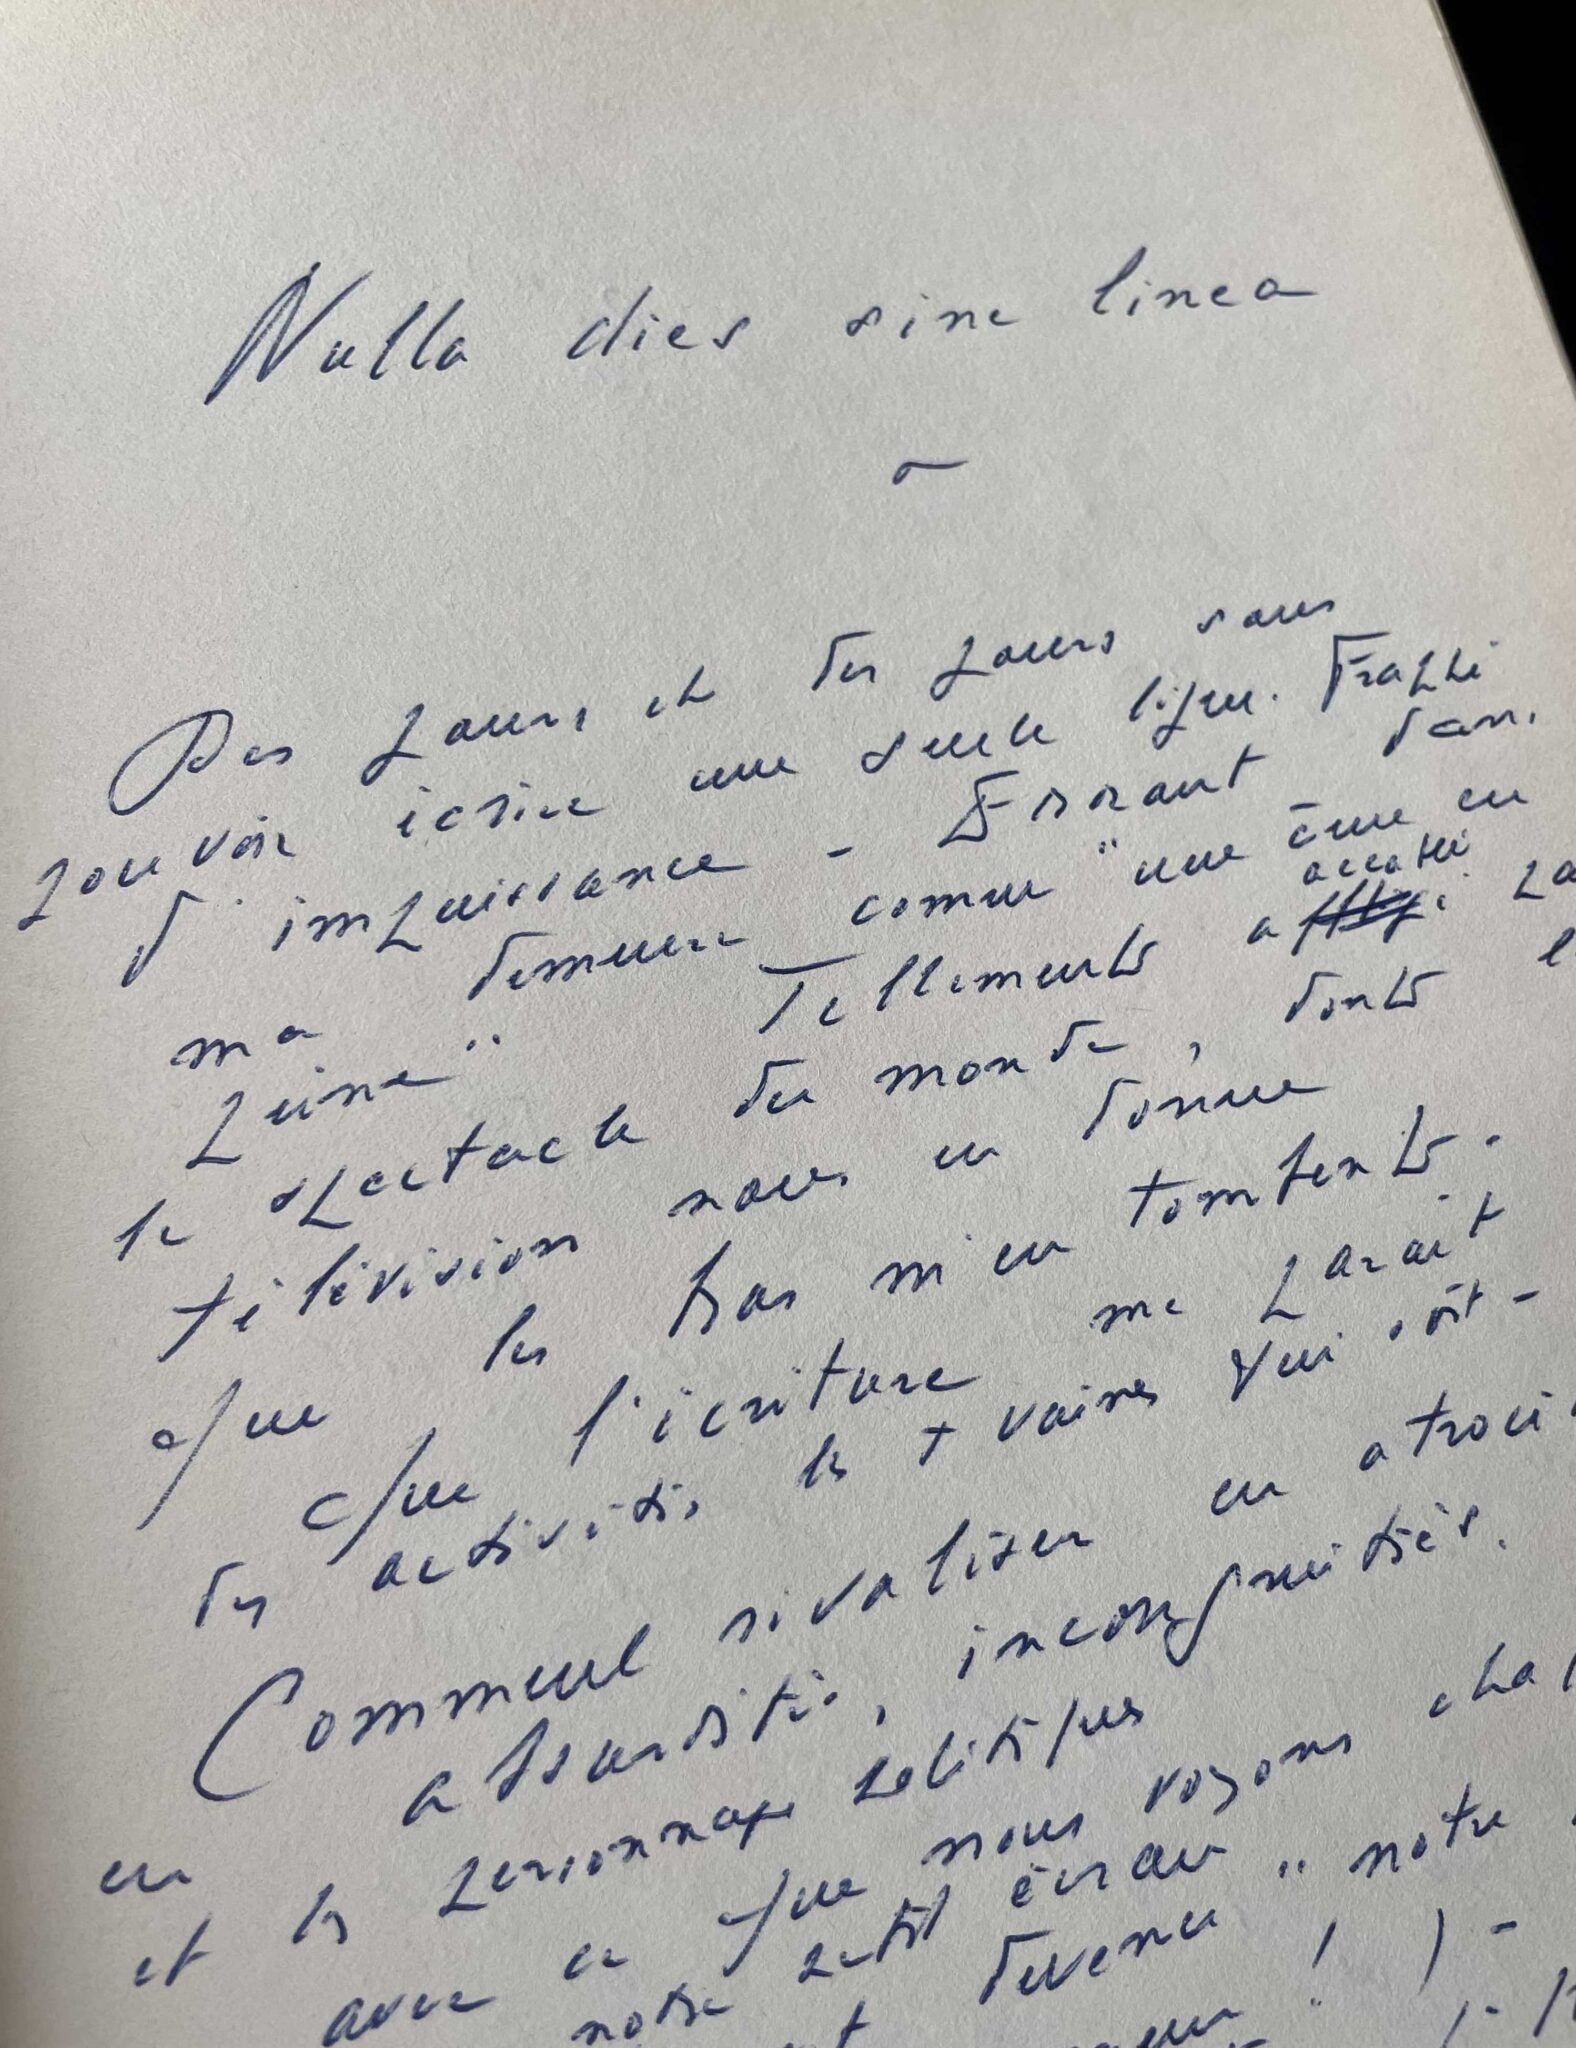 Nulla dies sine linea
Des jours et des jours sans
pouvoir écrire une seule ligne. Frappé
d'impuissance - Errant dans
ma demeure comme "une âme en
peine" Tellement accablé
le spectacle du monde, dont
télévision nous en donne
que les bras m'en tombent -
que l'écriture me parait
des activités, les + vaines qui soit -
Comment rivaliser en
en absurdités, incongruités.
et les personnages politiques
avec ce que nous voyons
notre petit écran "notre
devenu
! ) -